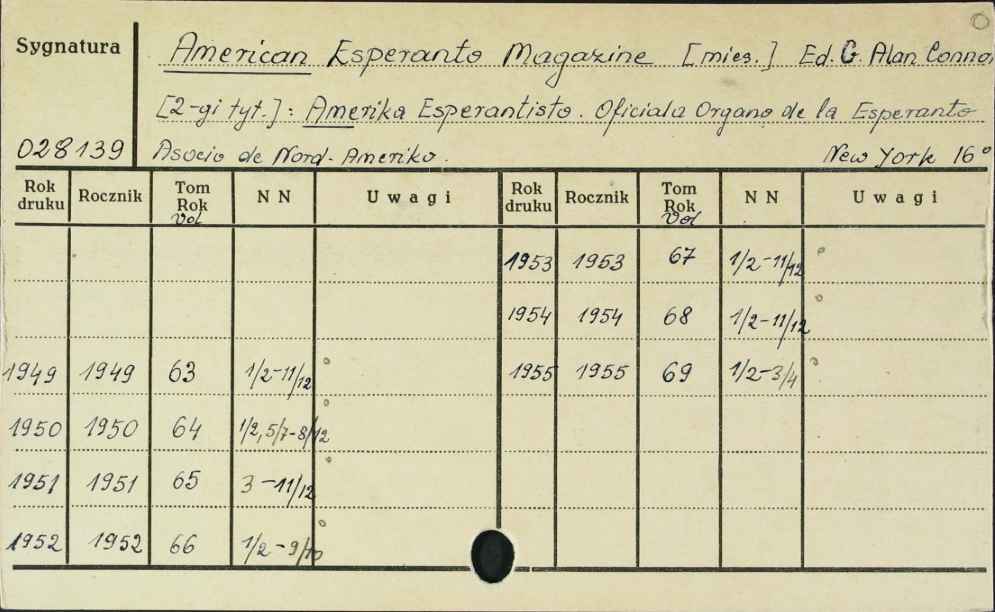 Sygnatura American Esperanto Magazine [mies.] Ed. G. Alan Conno
[2-gi tyt.]: Amerika Esperantisto. Oficiala Organo de la Esperanto
028139 Asocio de Nord-Ameriko. New York 16°
Rok druku Rocznik Tom Rok Vol N N Uwagi Rok druku Rocznik Tom Rok Vol N N Uwagi
1953 1953 67 1/2-11/12
1954 1954 68 1/2-11/12
1949 1949 63 1/2-11/12 1955 1955 69 1/2-3/4
1950 1950 64 1/2, 5/7-8/12
1951 1951 65 3-11/12
1952 1952 66 1/2-9/10